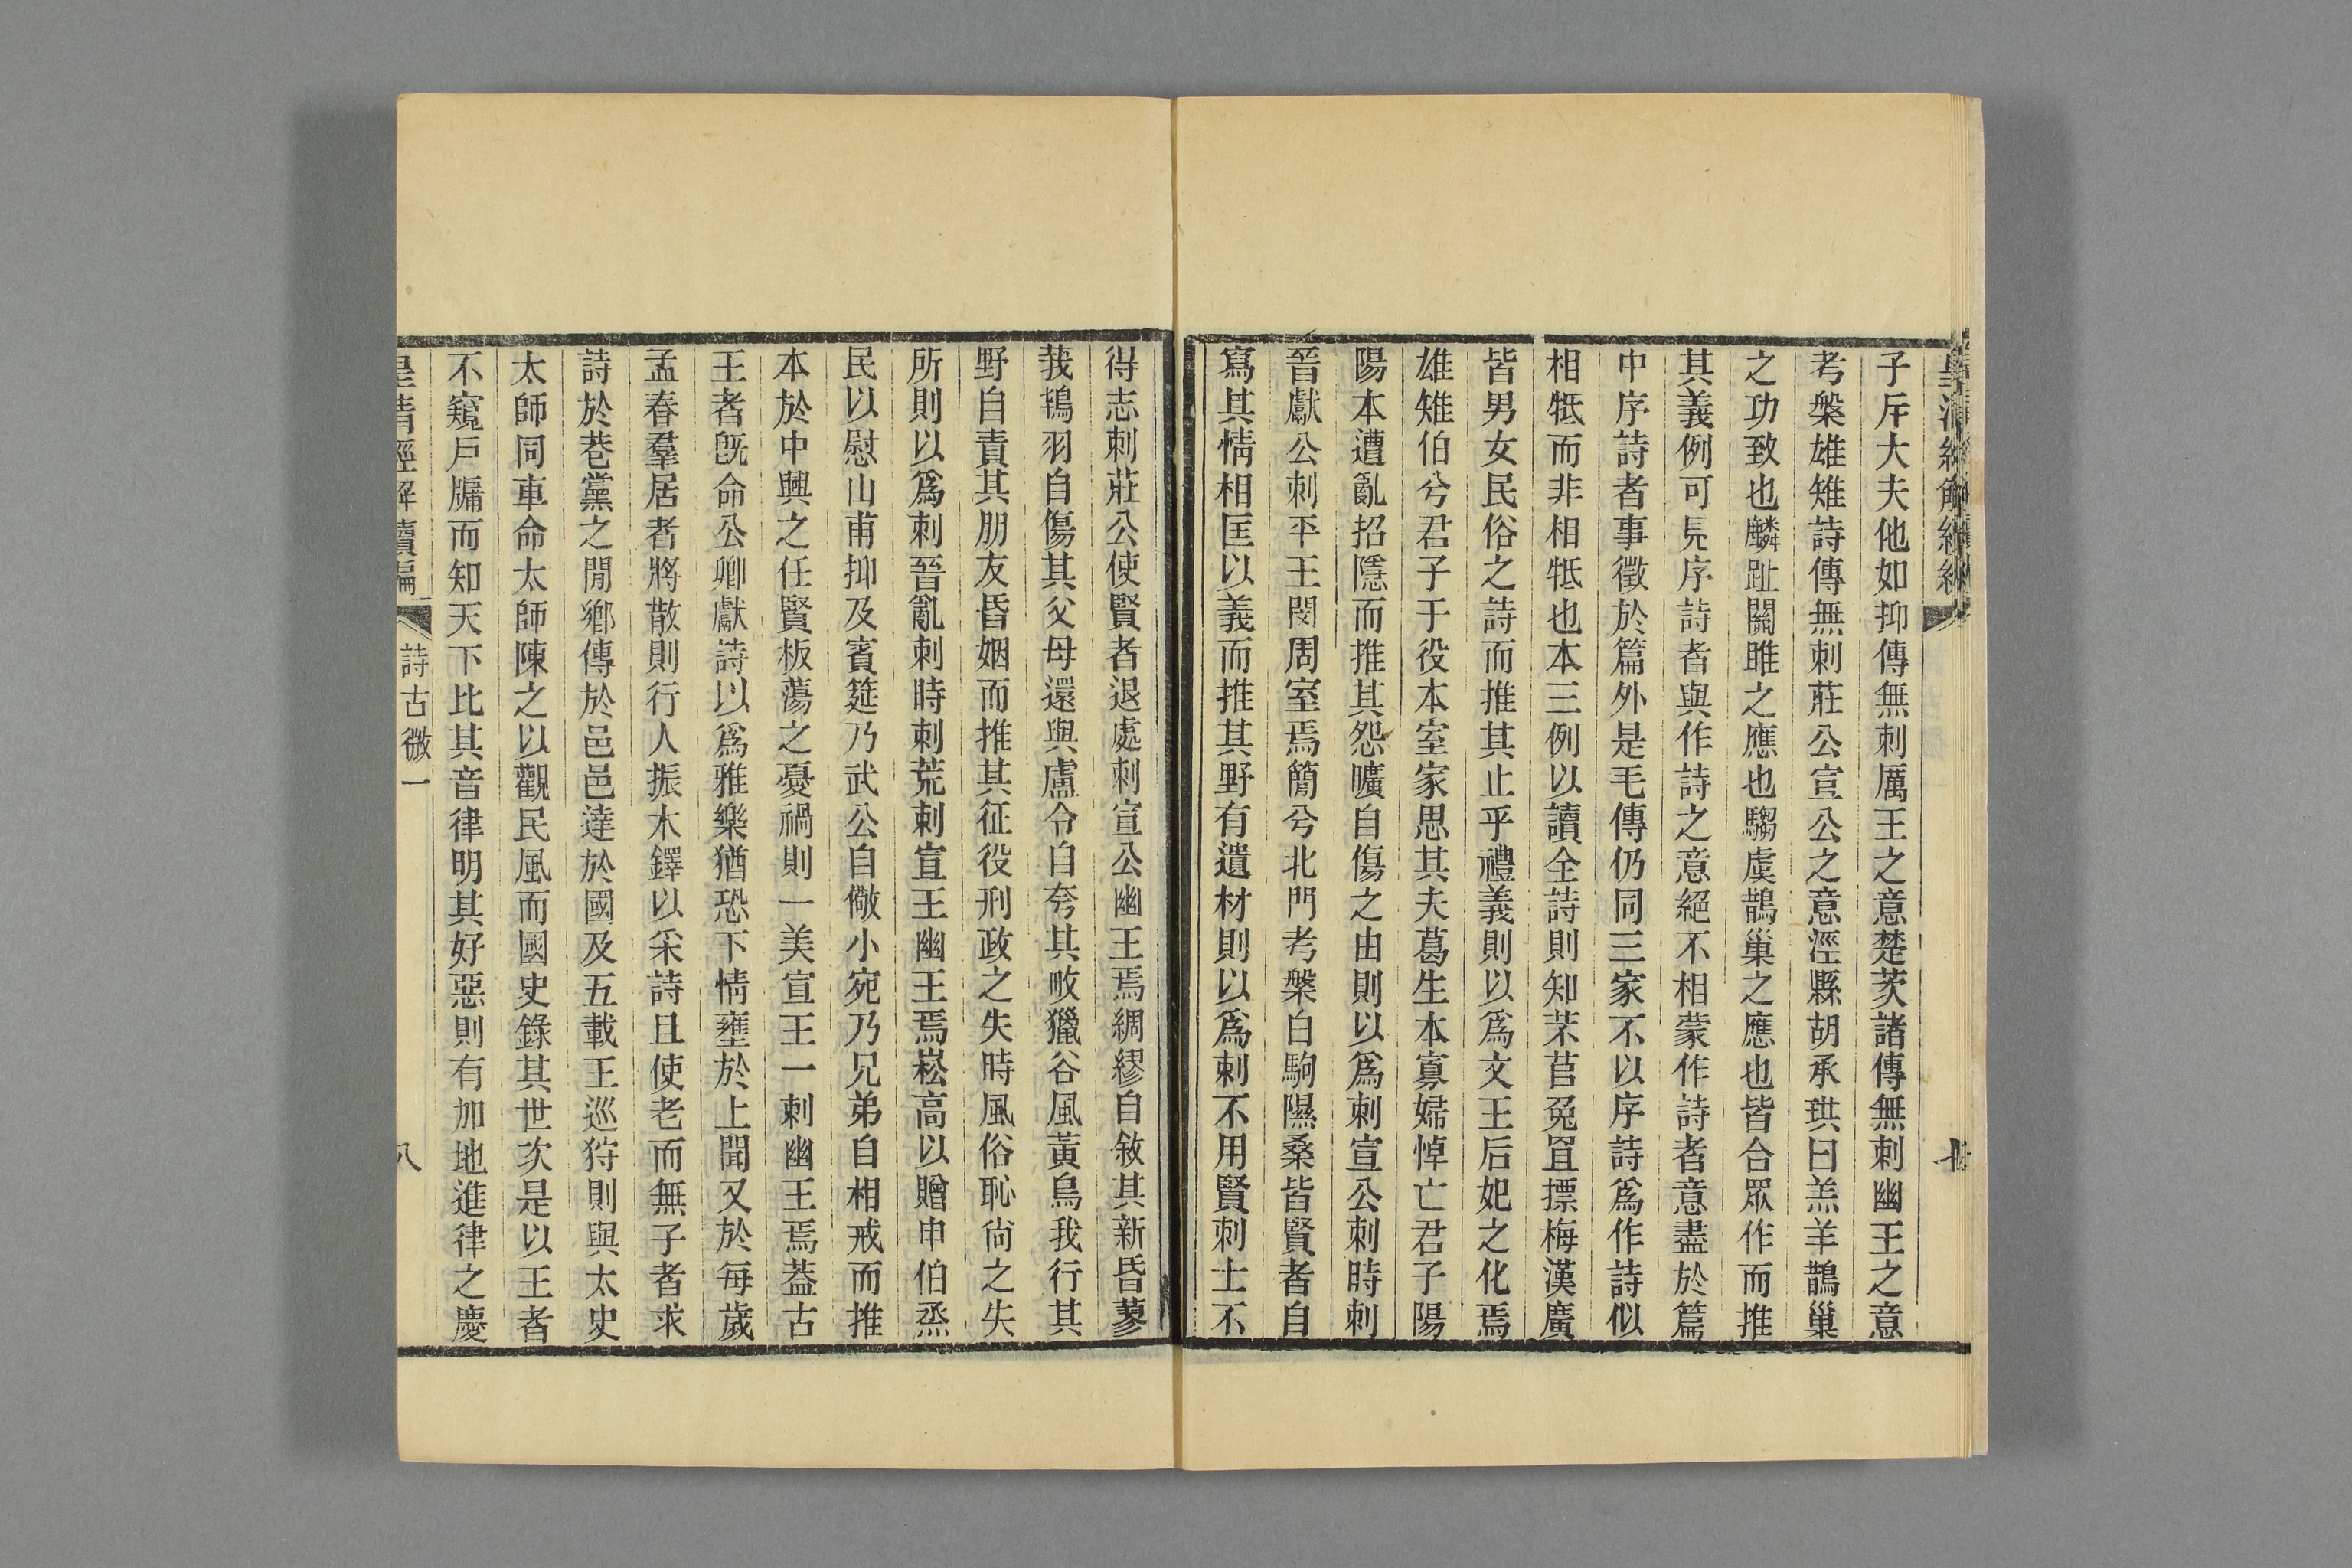 子斥大夫他如抑傳無刺厲王之意楚茨諸傳無刺幽王之意
考槃雄雉詩傳無刺莊公宣公之意涇縣胡承珙曰羔羊鵲巢
之功致也麟趾關雎之應也騶虞鵲巢之應也皆合眾作而推
其義例可見序詩者與作詩之意絕不相蒙作詩者意盡於篇
中序詩者事徵於篇外是毛傳仍同三家不以序詩爲作詩似
相牴而非相牴也本三例以讀全詩則知芣苢兔罝摽梅漢廣
皆男女民俗之詩而推其止乎禮義則以爲文王后妃之化焉
雄雉伯兮君子于役本室家思其夫葛生本寡婦悼亡君子陽
陽本遭亂招隱而推其怨曠自傷之由則以爲刺宣公刺時刺
晉獻公刺平王閔周室焉簡兮北門考槃白駒隰桑皆賢者自
寫其情相匡以義而推其野有遺材則以爲刺不用賢刺士不
得志刺莊公使賢者退處刺宣公幽王焉綢繆自敘其新昏蓼
莪鴇羽自傷其父母還與盧令自夸其畋獵谷風黃鳥我行其
野自責其朋友昏姻而推其征役刑政之失時風俗恥尙之失
所則以爲刺晉亂刺時刺荒刺宣王幽王焉崧高以贈申伯烝
民以慰山甫抑及賓筵乃武公自儆小宛乃兄弟自相戒而推
本於中興之任賢板蕩之憂禍則一美宣王一刺幽王焉葢古
王者旣命公卿獻詩以爲雅樂猶恐下情壅於上聞又於每歲
孟春羣居者將散則行人振木鐸以采詩且使老而無子者求
詩於巷黨之閒鄉傳於邑邑達於國及五載王巡狩則與太史
太師同車命太師陳之以觀民風而國史錄其世次是以王者
不窺戶牖而知天下比其音律明其好惡則有加地進律之慶
皇清經解續編
詩古微一
八